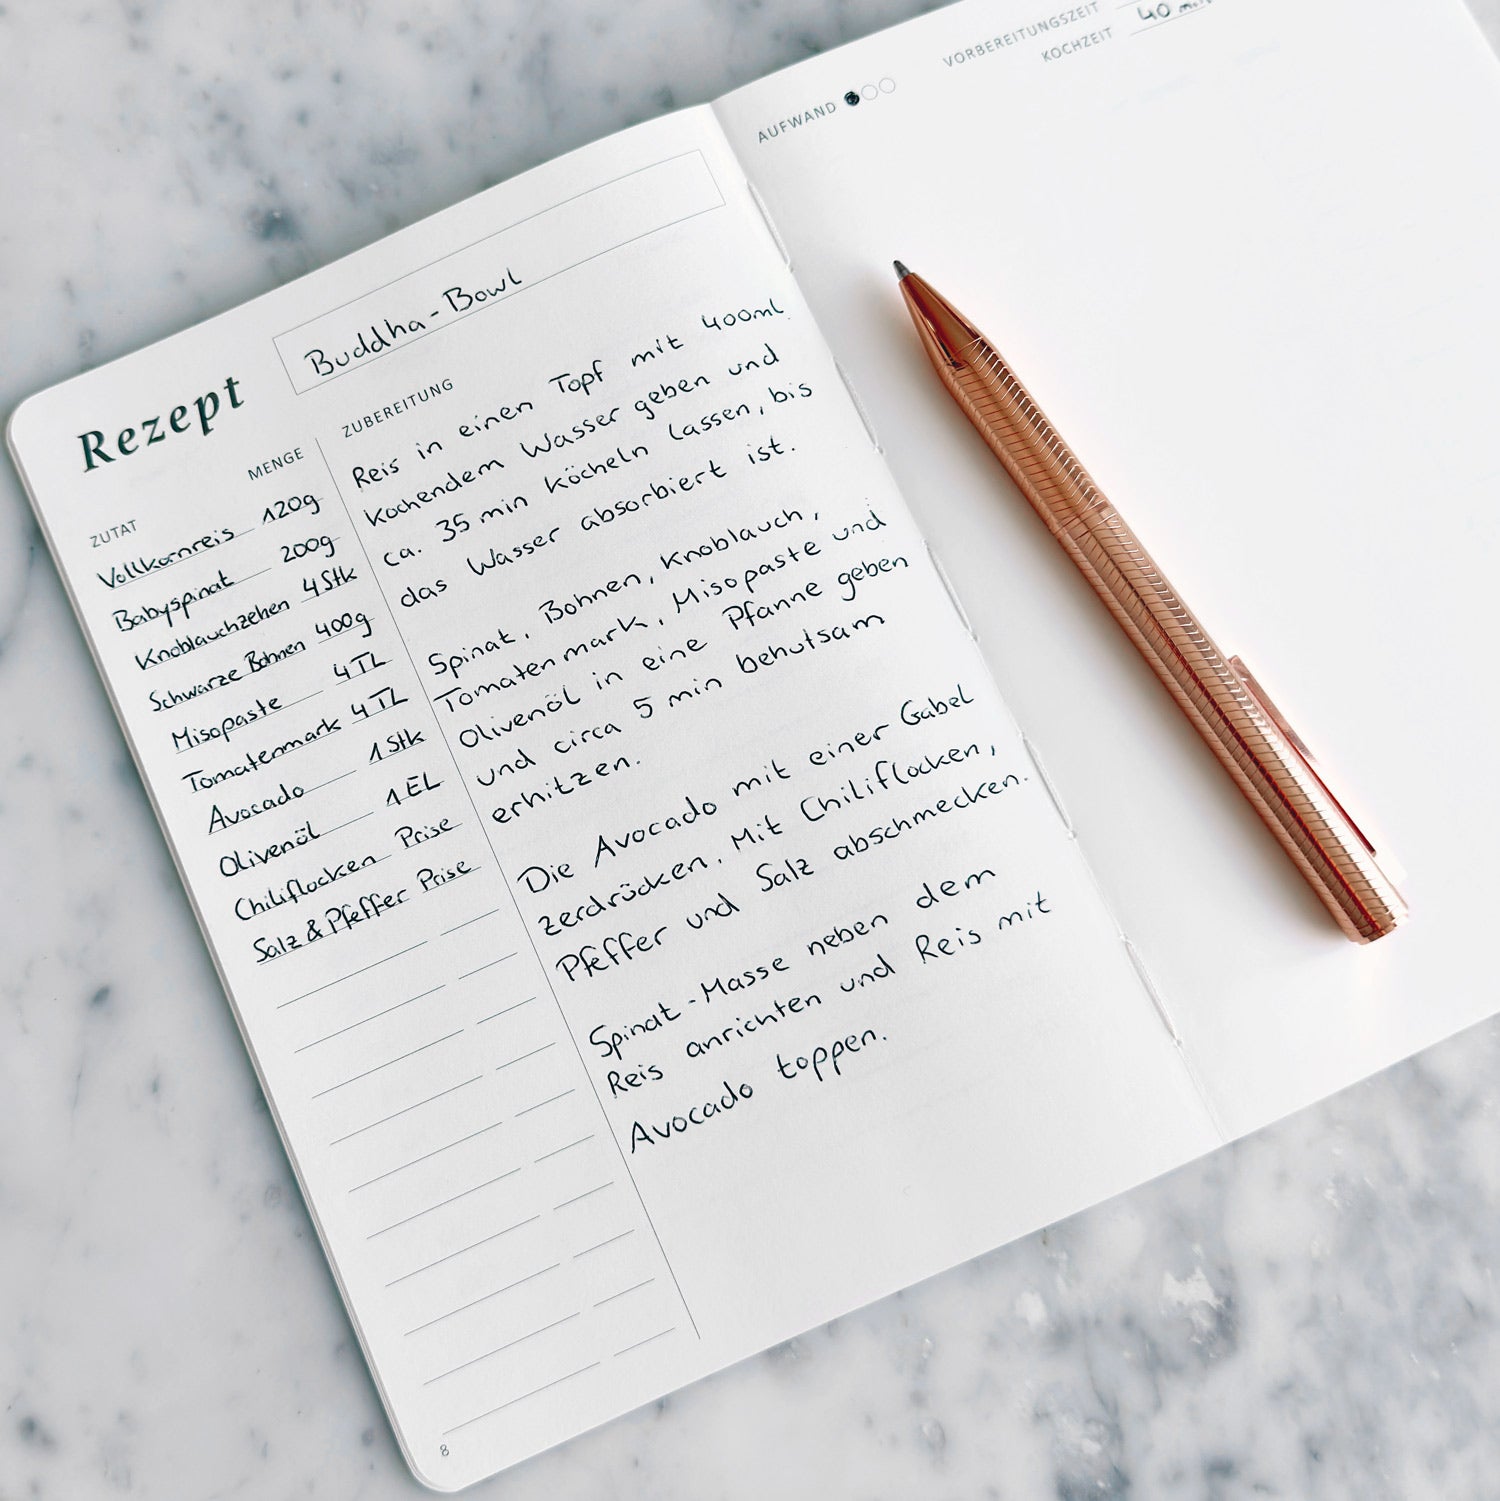 Rezept
Buddha-Bowl
ZUTAT MENGE
Vollkornreis 120g
Babyspinat 200g
Knoblauchzehen 4 Stk
Schwarze Bohnen 400g
Misopaste 4 TL
Tomatenmark 4 TL
Avocado 1 Stk
Olivenöl 1 EL
Chiliflocken Prise
Salz & Pfeffer Prise
ZUBEREITUNG
Reis in einen Topf mit 400ml
kochendem Wasser geben und
ca. 35 min köcheln lassen, bis
das Wasser absorbiert ist.
Spinat, Bohnen, Knoblauch,
Tomatenmark, Misopaste und
Olivenöl in eine Pfanne geben
und circa 5 min behutsam
erhitzen.
Die Avocado mit einer Gabel
zerdrücken. Mit Chiliflocken,
Pfeffer und Salz abschmecken.
Spinat-Masse neben dem
Reis anrichten und Reis mit
Avocado toppen.
8
AUFWAND
VORBEREITUNGSZEIT
KOCHZEIT 40 min